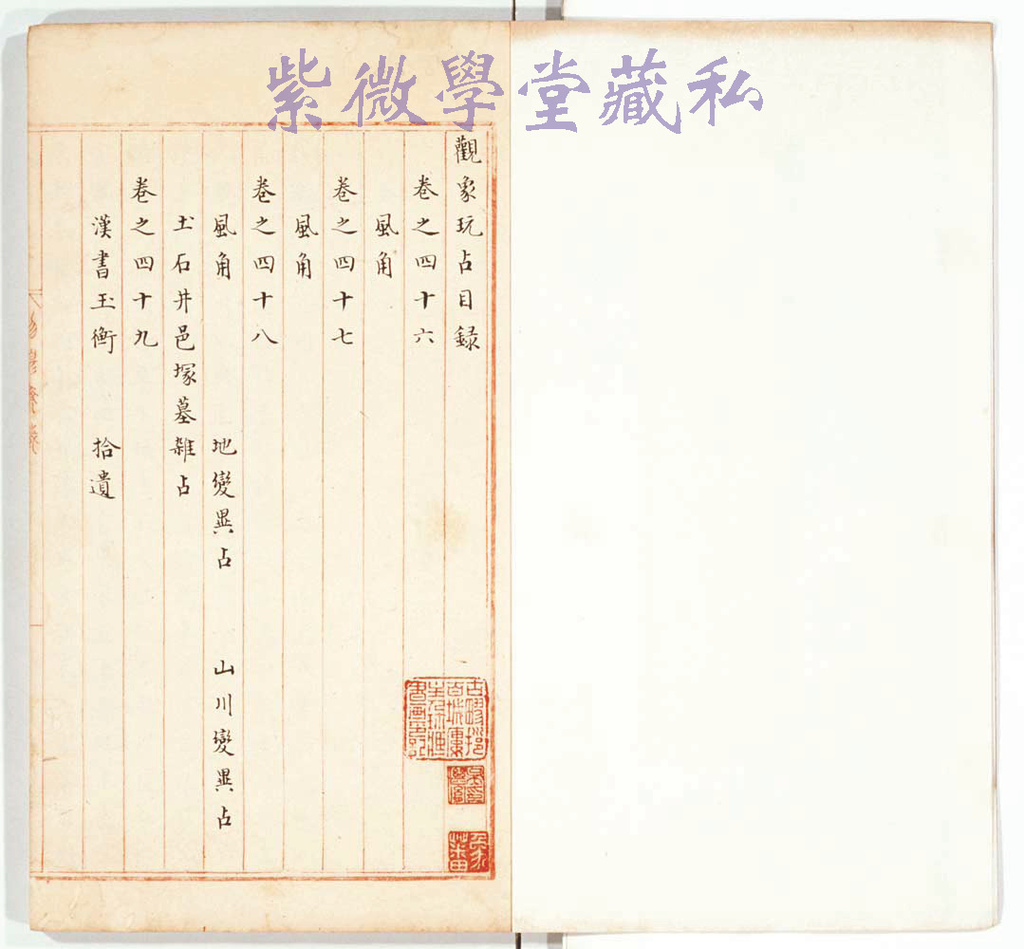 紫微學堂藏私
觀象玩占目録
卷之四十六
風角
卷之四十七
風角
卷之四十八
風角 地變異占 山川變異占
土石井邑塚墓雜占
卷之四十九
漢書玉衡 拾遺